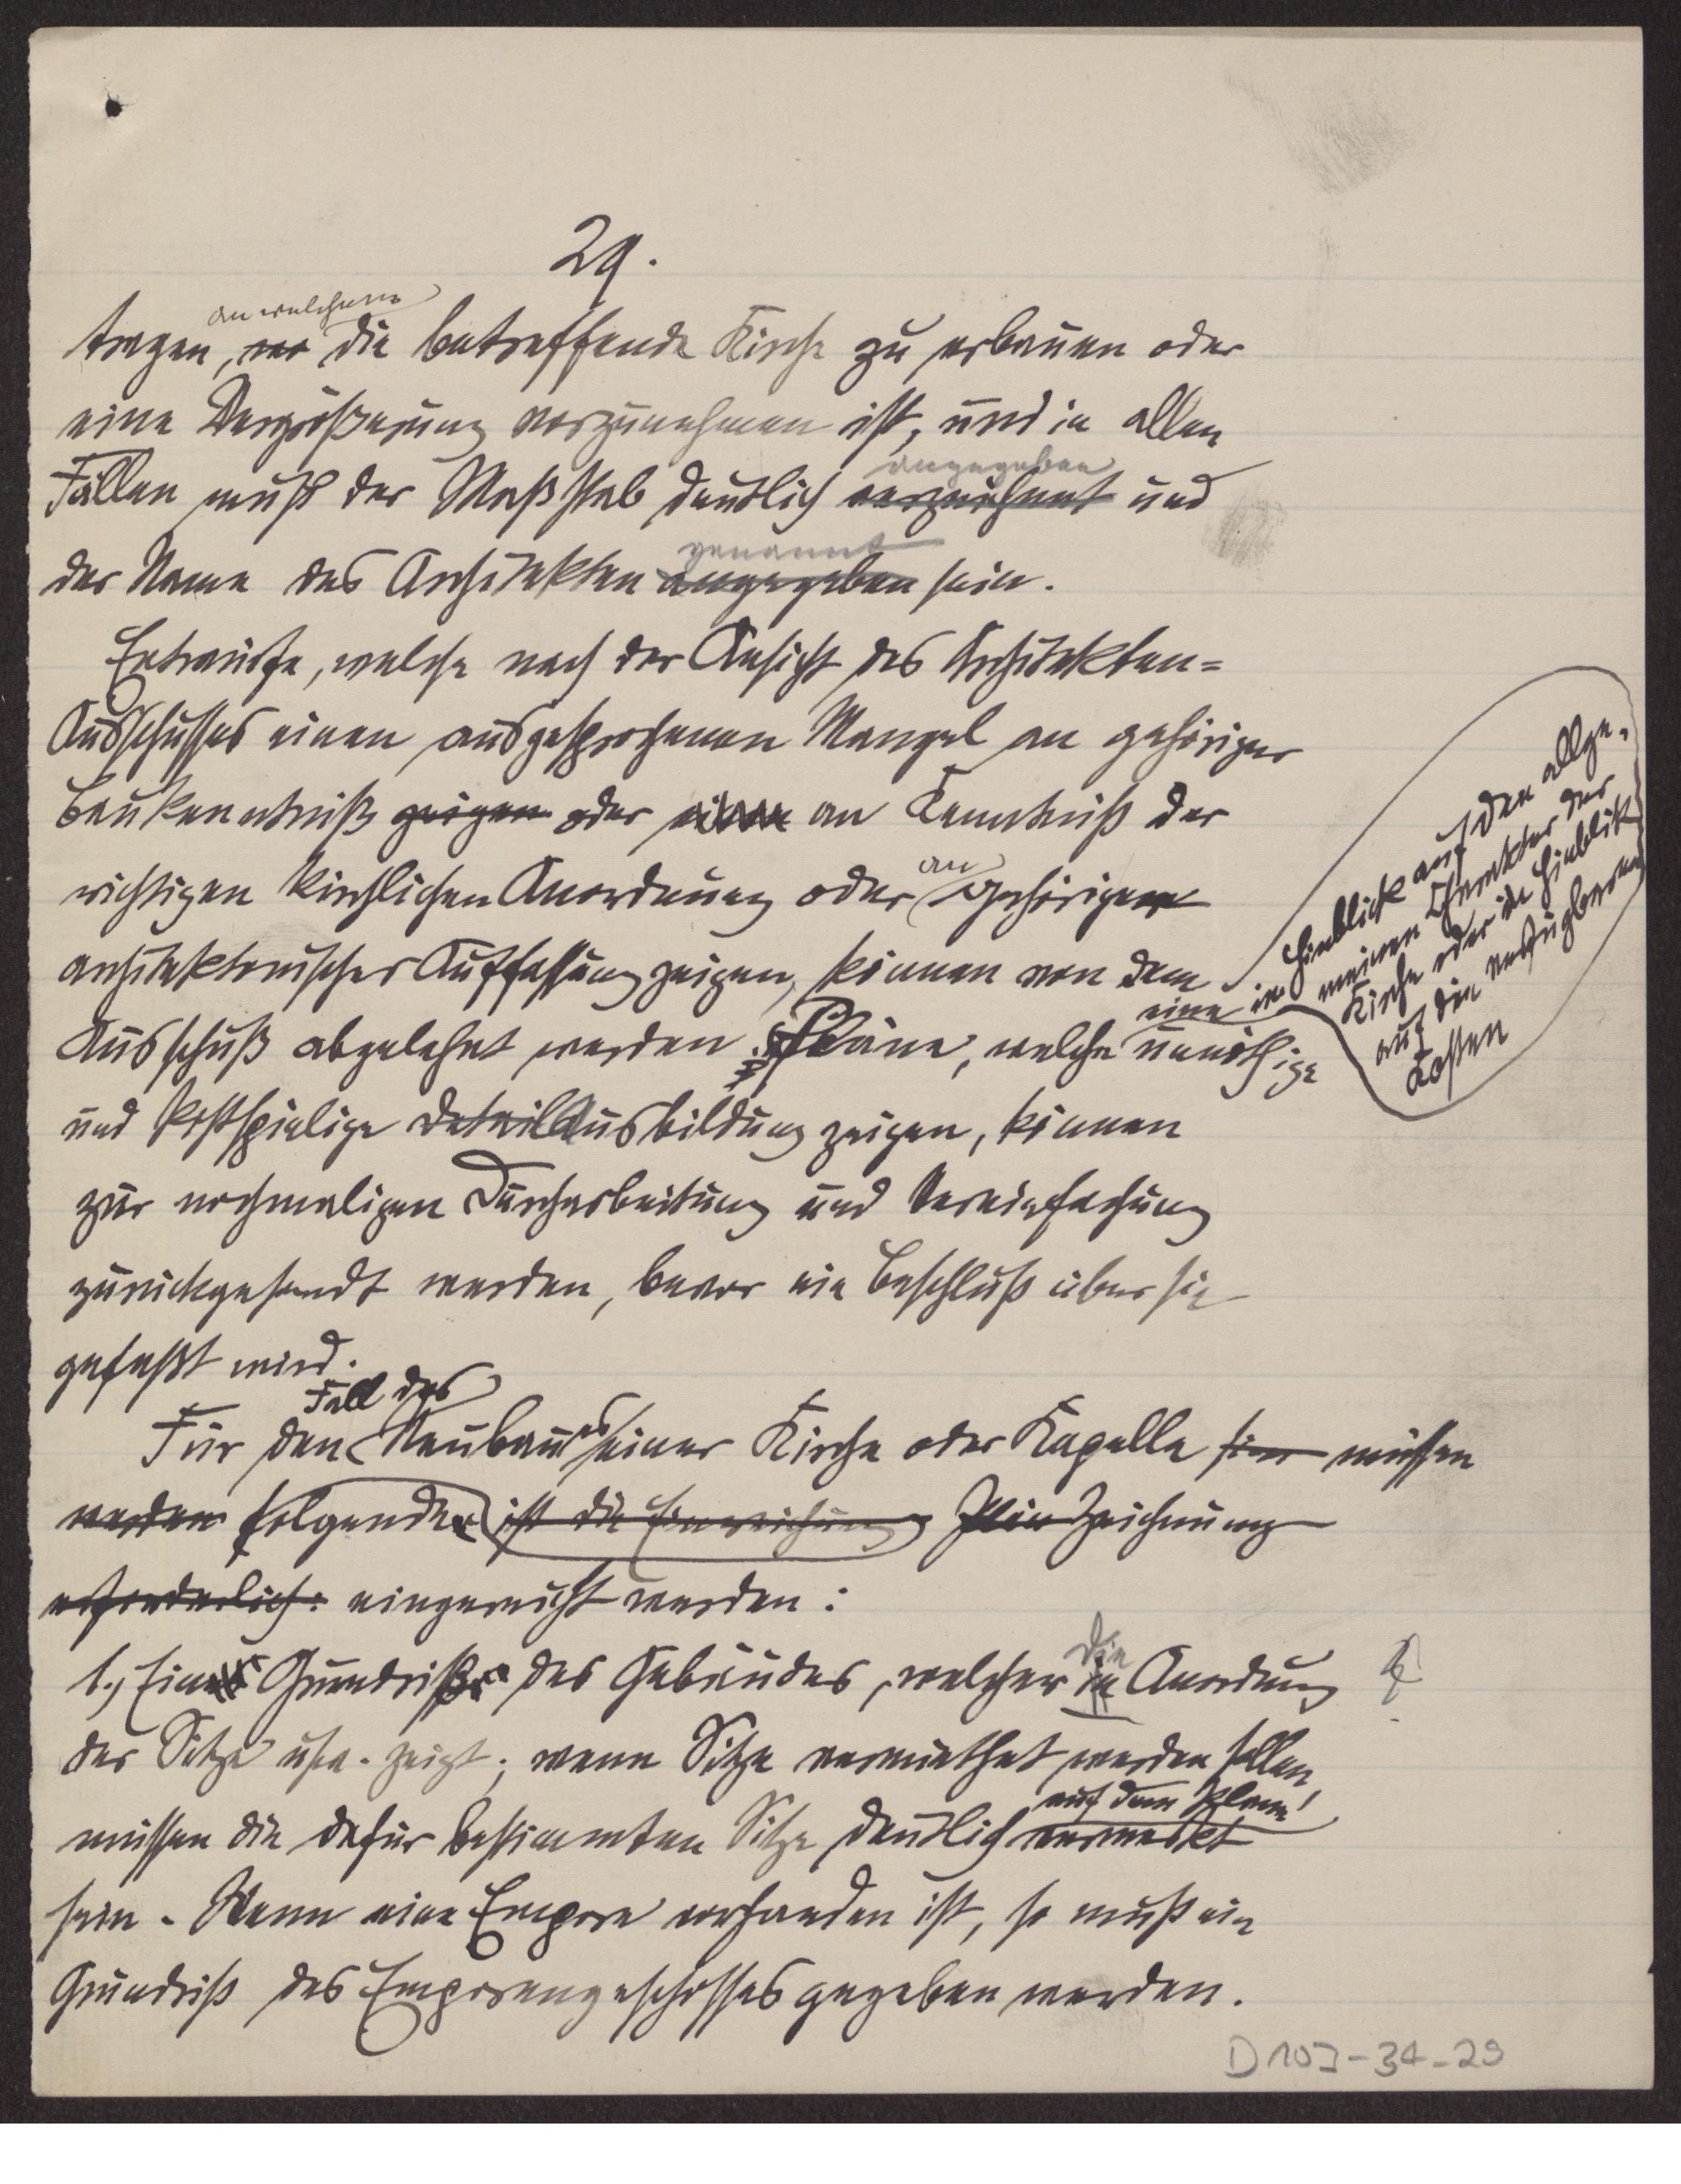 29.
an welchem
tragen, wo die betreffende Kirche zu erbauen oder
eine Vergrößerung vorzunehmen ist, und in allen
angegeben
Fällen muß der Maßstab deutlich verzeichnet und
genannt
der Name des Architekten angegeben sein.
Entwürfe, welche nach der Ansicht des Architekten=
Ausschusses einen ausgesprochenen Mangel an gehöriger
Baukenntniß zeigen oder an Kenntniß der
an
richtigen kirchlichen Anordnung oder gehöriger
architektonischer Auffassung zeigen, können von dem
eine im Hinblick auf den allge-
meinen Charakter der
Kirche oder im Hinblick
auf die verfügbaren
Kosten
Ausschuß abgelehnt werden. Pläne, welche unnöthige
und kostspielige Detail Ausbildung zeigen, können
zur nochmaligen Durcharbeitung und Vereinfachung
zurückgesandt werden, bevor ein Beschluß über sie
gefaßt wird.
Fall des
Für den Neubaues einer Kirche oder Kapelle müssen
werden folgende ist die Einreichung Zeichnung
erforderlich: eingereicht werden:
die
1., Ein Grundriß des Gebäudes, welcher in Anordnung
der Sitze usw. zeigt; wenn Sitze vermiethet werden sollen,
auf dem Plane
müssen die dafür bestimmten Sitze deutlich vermerkt
sein. Wenn eine Empore vorhanden ist, so muß ein
Grundriß des Emporengeschosses gegeben werden.
D 103-34-29